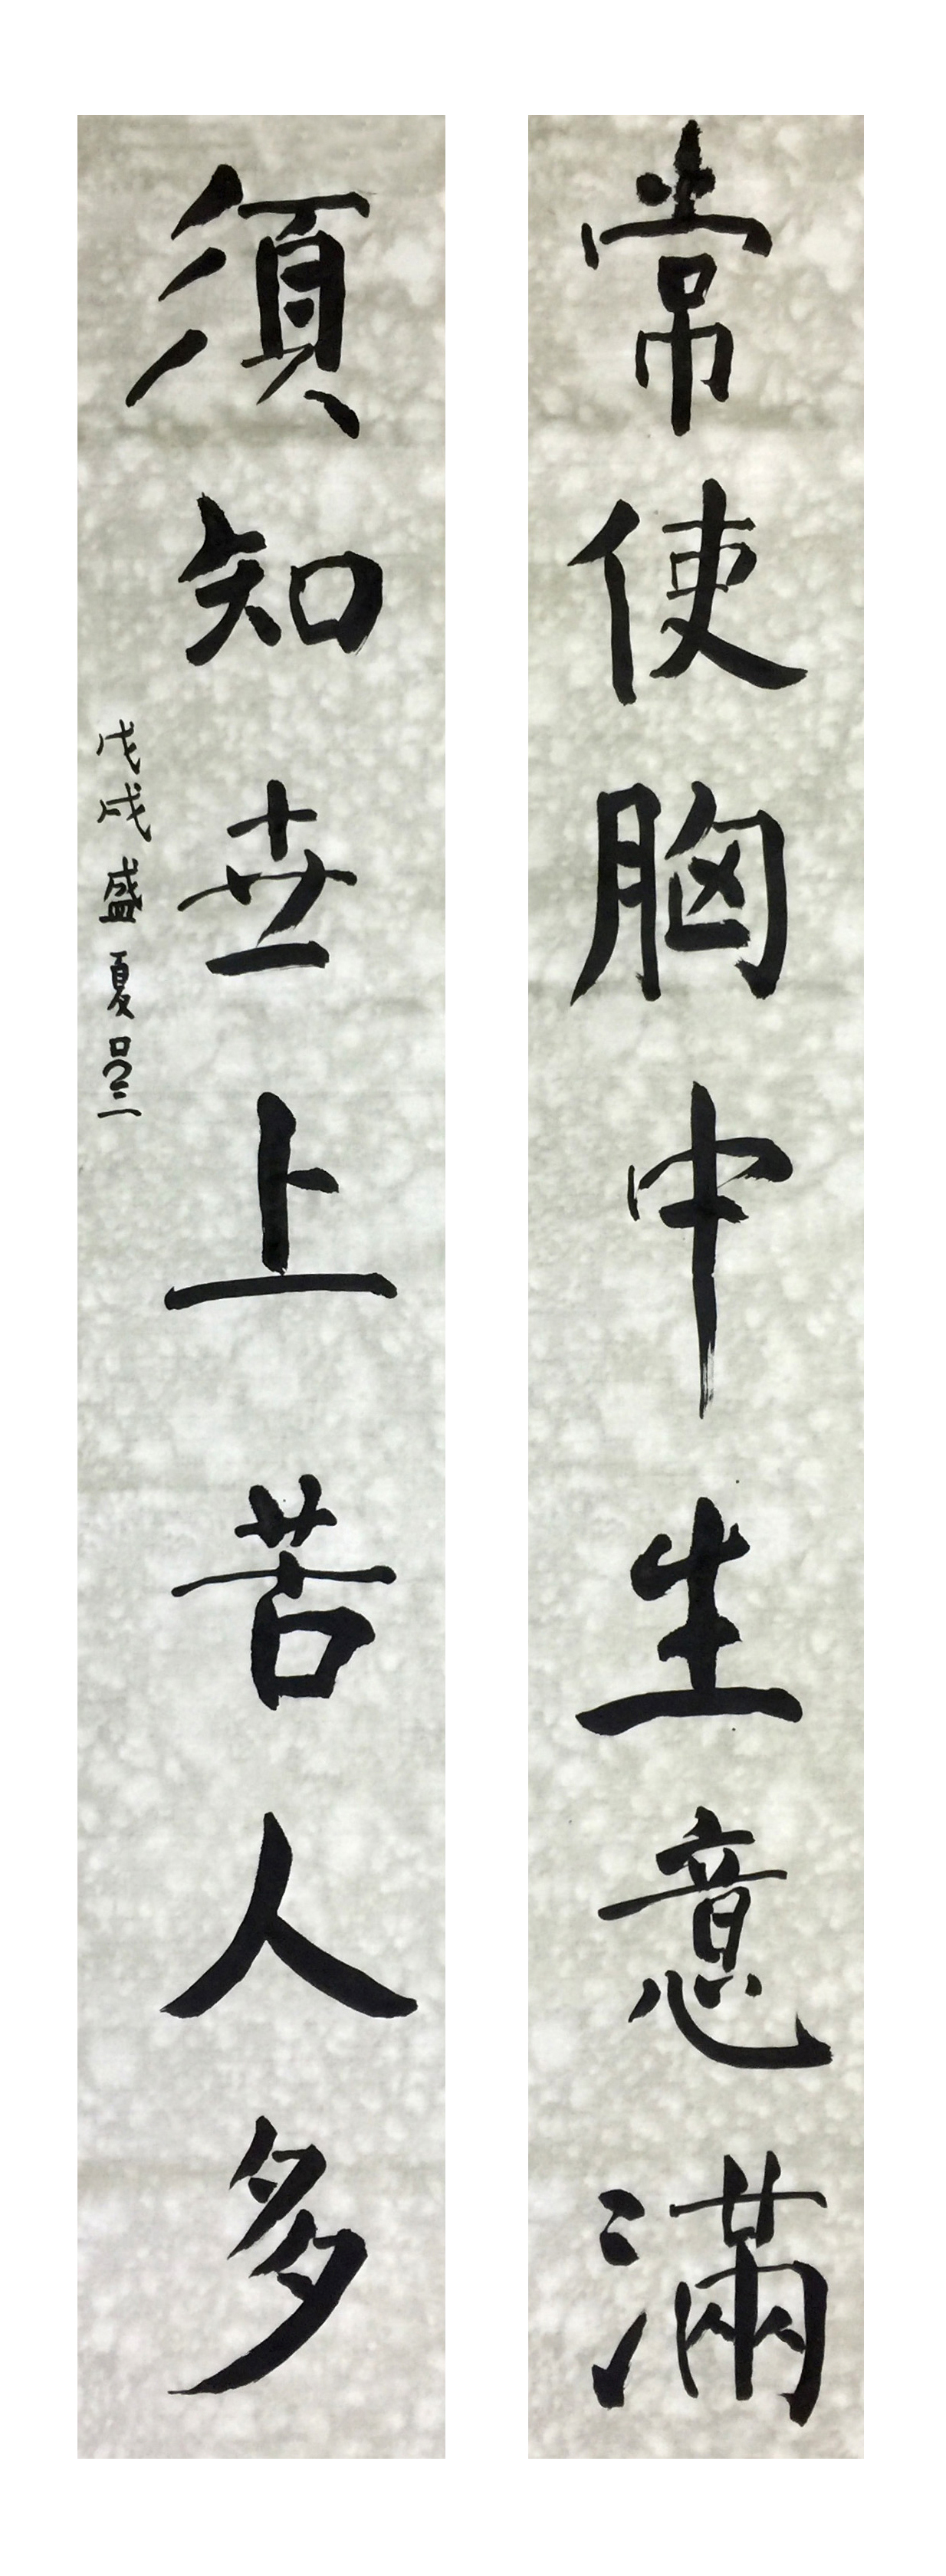 常使胸中生意滿
須知世上苦人多
戊戌盛夏